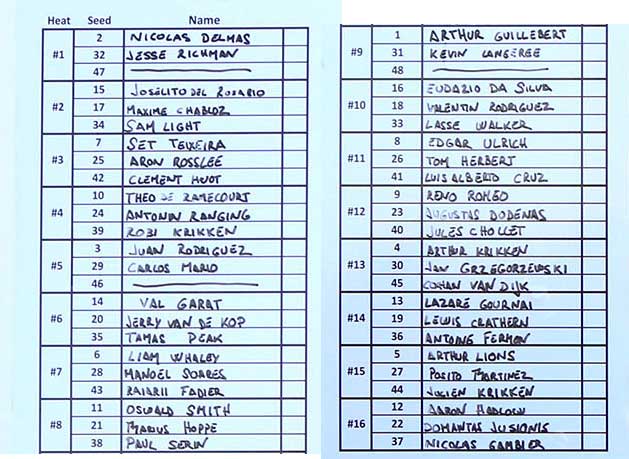 Heat Seed Name
#1
2 NICOLAS DELMAS
32 JESSE RICHMAN
47
#2
15 JOSELITO DEL ROSARIO
17 MAXIME CHABLOZ
34 SAM LIGHT
#3
7 SET TEIXEIRA
25 ARON ROSSLEE
42 CLEMENT HUOT
#4
10 THEO DE RAMECOURT
24 ANTONIN RANGING
39 ROBI KRIKKEN
#5
3 JUAN RODRIGUEZ
29 CARLOS MARIO
46
#6
14 VAL GARAT
20 JERRY VAN DE KOP
35 TAMAS PEAK
#7
6 LIAM WHALEY
28 MANOEL SOARES
43 RAIARII FADIER
#8
11 OSWALD SMITH
21 MARIUS HOPPE
38 PAUL SERIN
#9
1 ARTHUR GUILLEBERT
31 KEVIN LANGEREE
48
#10
16 EUDAZIO DA SILVA
18 VALENTIN RODRIGUEZ
33 LASSE WALKER
#11
8 EDGAR ULRICH
26 TOM HERBERT
41 LUIS ALBERTO CRUZ
#12
9 RENO ROMEO
23 AUGUSTAS DODENAS
40 JULES CHOLLET
#13
4 ARTHUR KRIKKEN
30 JAN GRZEGORZEWSKI
45 COHAN VAN DIJK
#14
13 LAZARE GOURNAI
19 LEWIS CRATHERN
36 ANTOINE FERMON
#15
5 ARTHUR LIONS
27 POSITO MARTINEZ
44 JULIEN KRIKKEN
#16
12 AARON HADLOW
22 DOMANTAS JUSIONIS
37 NICOLAS GAMBIER